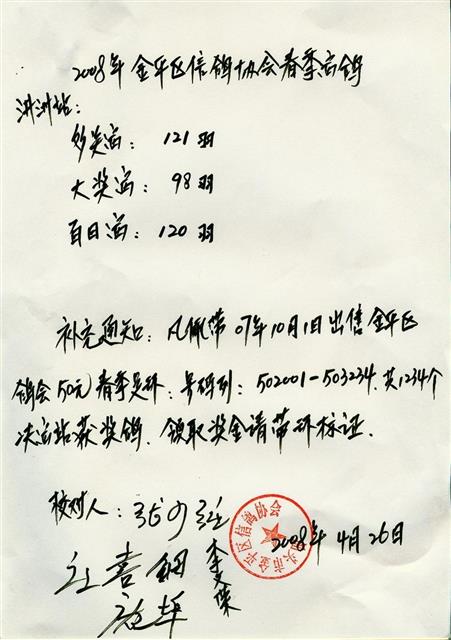 2008年金平区信鸽协会春季赛鸽
洪洲站:
多关赛: 121羽
大奖赛: 98羽
百日赛: 120羽
补充通知: 凡佩带07年10月1日出售金平区
鸽会50元春季足环. 号码列: 502001-503234. 共1234个
决赛站获奖鸽. 领取奖金请带环标证.
校对人:
2008年4月26日
汕头市金平区信鸽协会